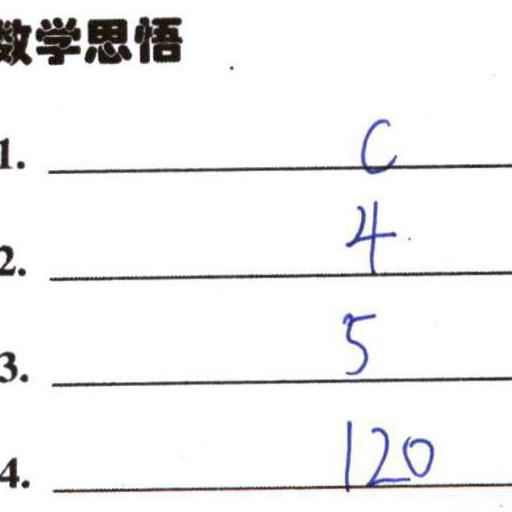 数学思悟
1. C
2. 4
3. 5
4. 120